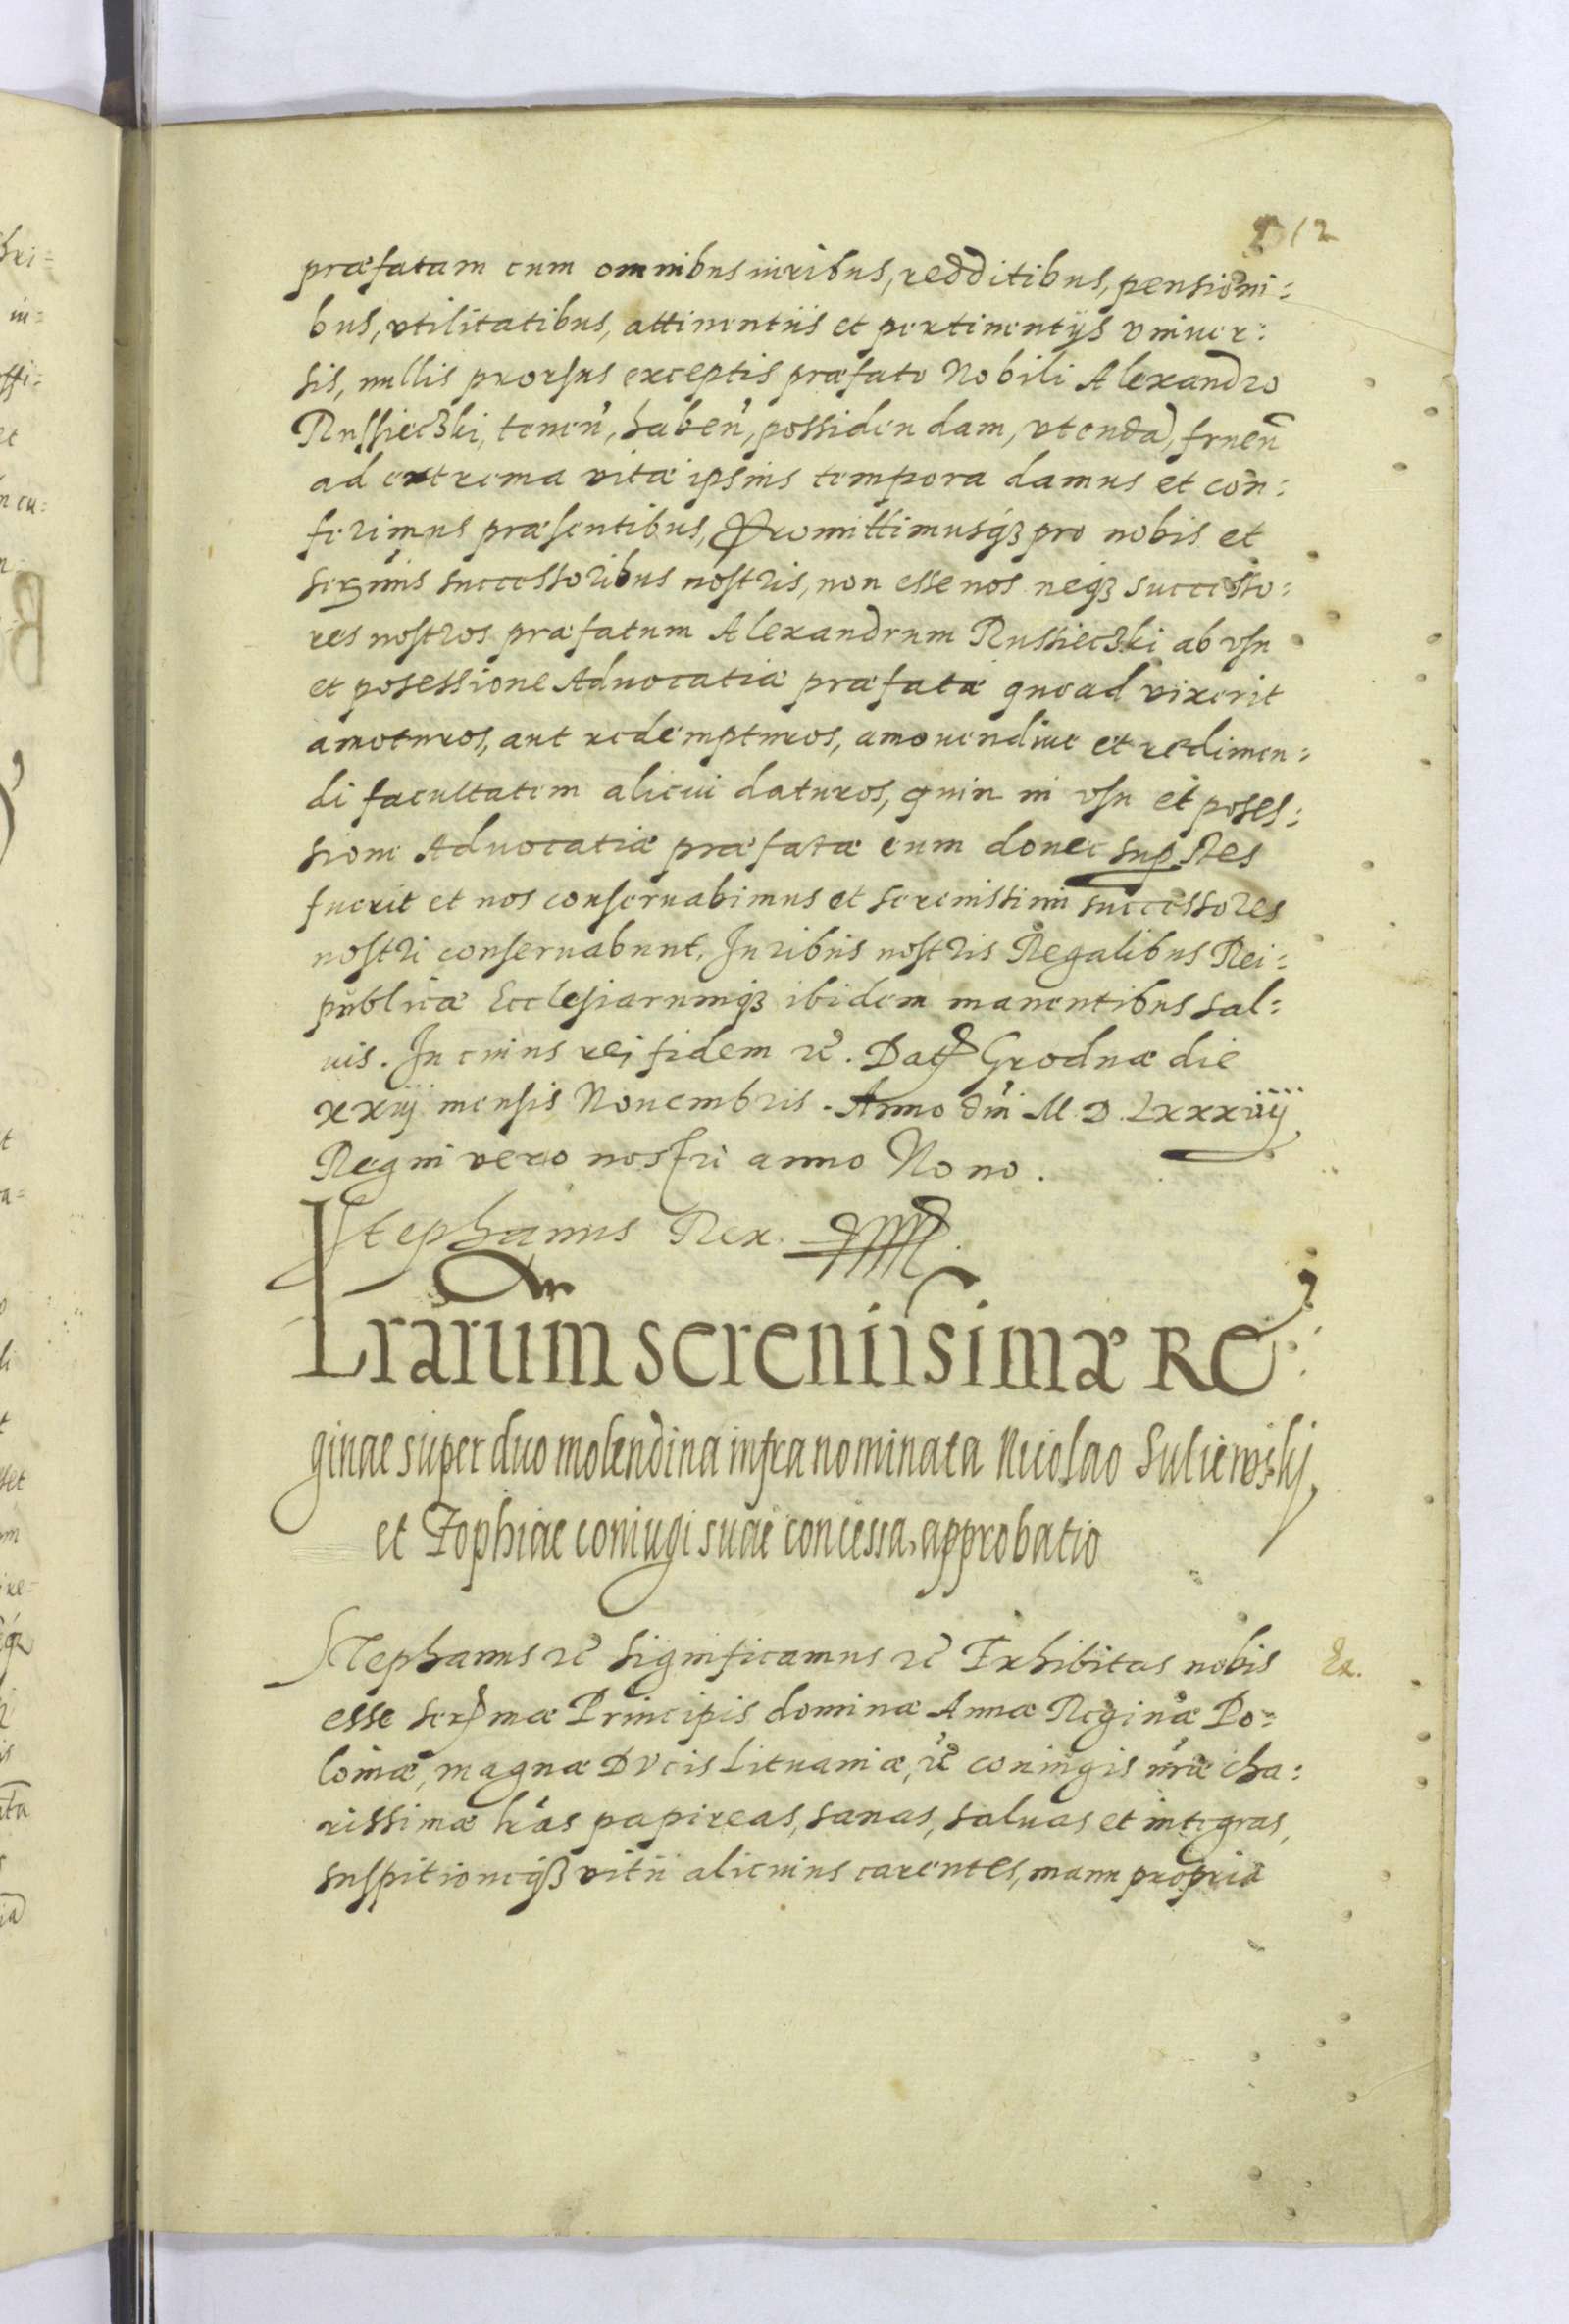 212
præfatam cum omnibus iuribus, redditibus, pensioni:
bus, vtilitatibus, attinentiis et pertinentijs vniuer:
sis, nullis prorsus exceptis præfato Nobili Alexandro
Russieczki, tenen̄, haben̄, possidendam, vtendā, fruen̄
ad extrema vitæ ipsius tempora damus et con:
ferimus præsentibus, Promittimusq₃ pro nobis et
sermis successoribus nostris, non esse nos neq₃ successo:
res nostros præfatum Alexandrum Russieczki ab vsu
et posessione Aduocatiæ præfatæ quoad vixerit
amoturos, aut redempturos, amouendiue et redimen:
di facultatem alicui daturos, quin in vsu et poses:
sione Aduocatiæ præfatæ eum donec supstes
fuerit et nos conseruabimus et serenissimi successores
nostri conseruabunt. Iuribus nostris Regalibus Rei:
publicæ Ecclesiarumq₃ ibidem manentibus sal:
uis. In cuius rei fidem etc̄. Dat Grodnæ die
xxiij mensis Nouembris. Anno dn̄i M.D.Lxxxiiij
Regni vero nostri anno Nono.
Stephanus Rex.
Lrārum serenissimæ Re:
ginae super duo molendina infra nominata Nicolao Suliewskj,
et Zophiae coniugi suae concessa, approbatio
Stephanus etc̄ Significamus etc̄ Exhibitas nobis
Ex.
esse sermæ Principis dominæ Annæ Reginæ Po:
loniæ, magnæ Dvcis Lituaniæ, etc̄ coniugis nr̄æ cha:
rissimæ lr̄as papireas, sanas, saluas et integras,
suspitioneq₃ vitii alicuius carentes, manu propria